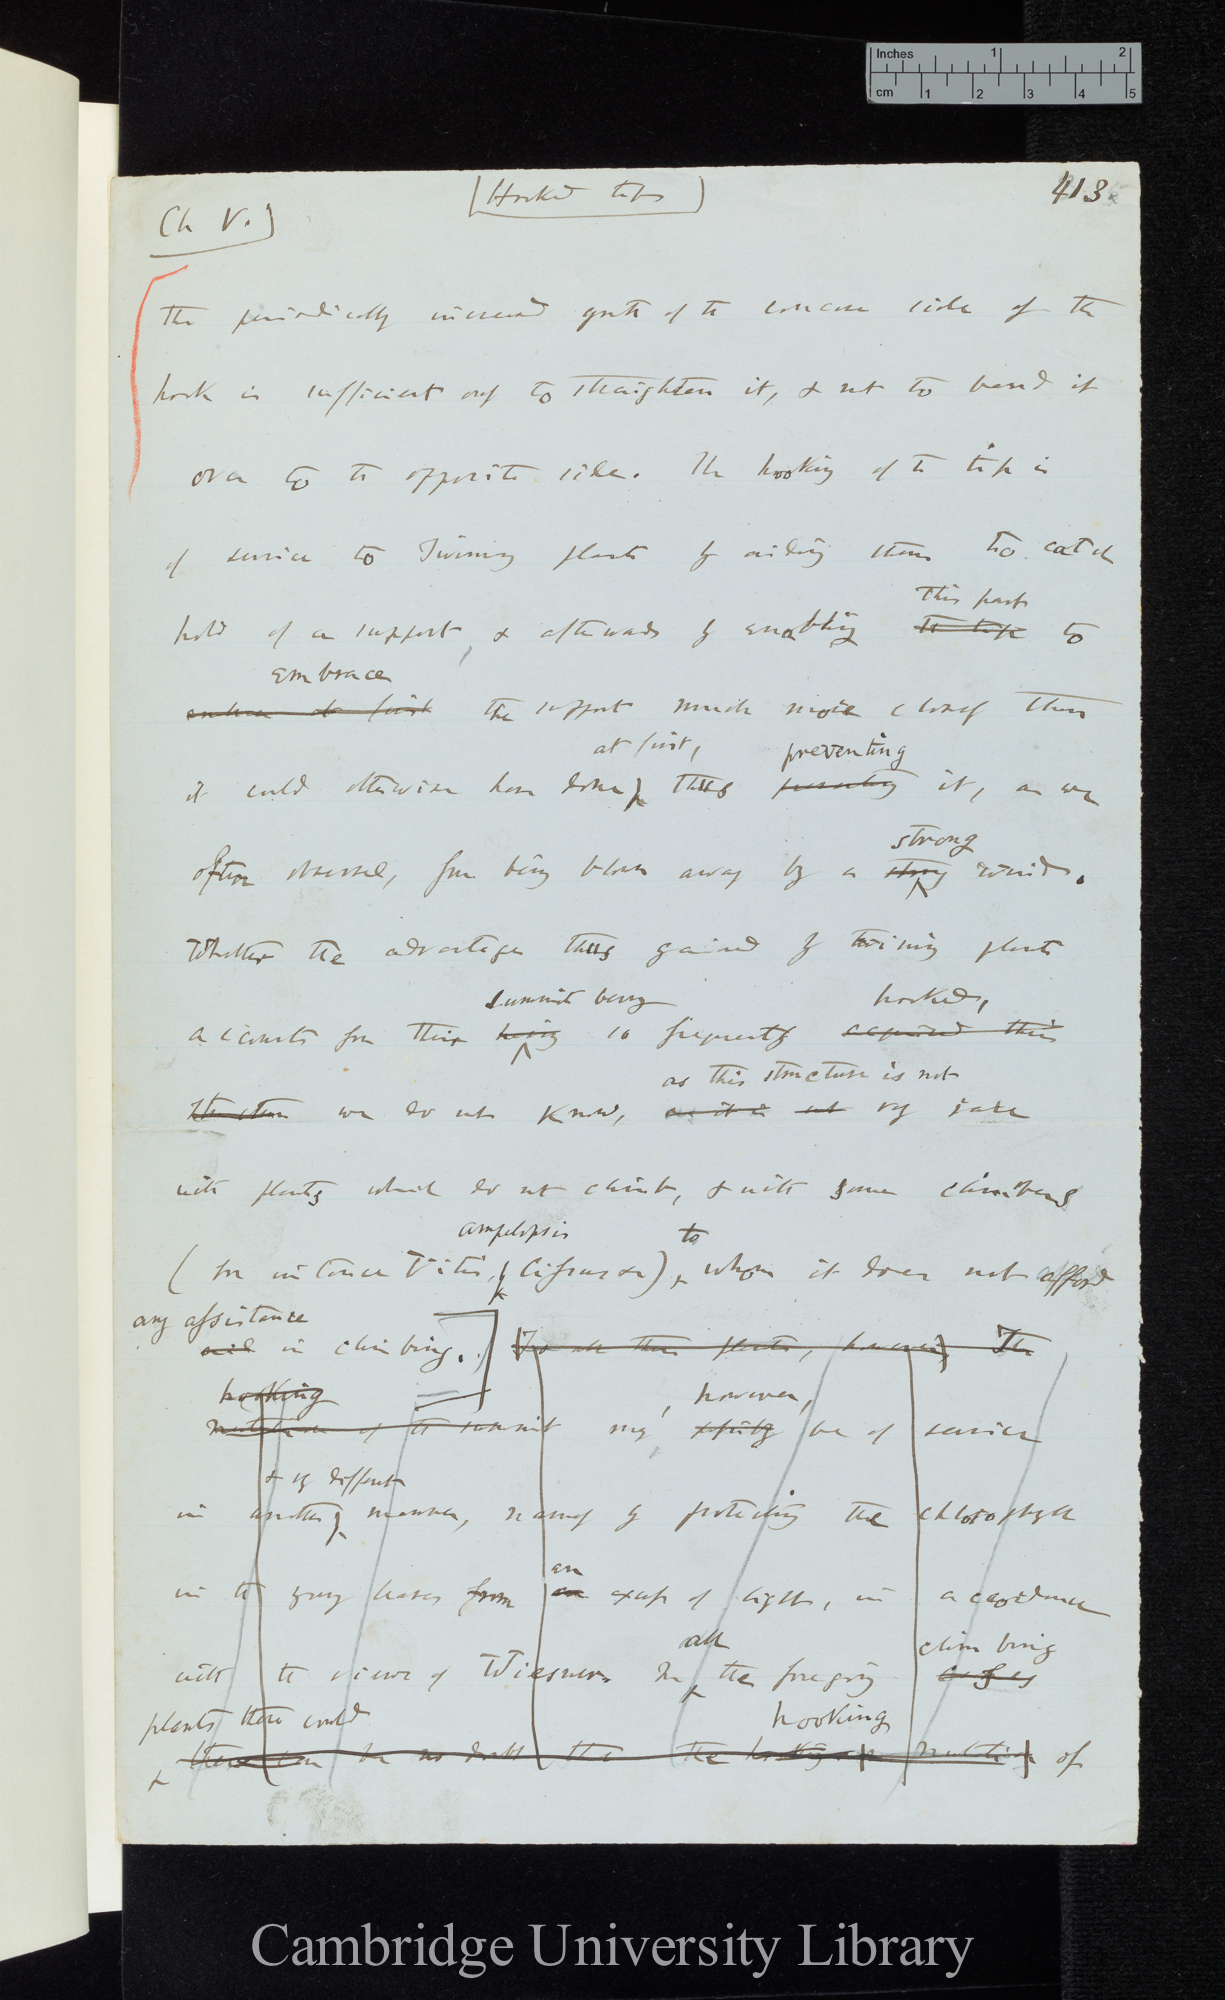 Inches 1 2
cm 1 2 3 4 5
Ch V.)
(Hooked tips)
413
the periodically increased growth of the concave side of the
hook is sufficient only to straighten it, & not to bend it
over to the opposite side. The hooking of the tip is
of service to Twining plants by aiding them to catch
This part
hold of a support, & afterwards by enabling the tips to
embrace
embrace at first the support much more closely than
at first, preventing
it could otherwise have done, thus preventing it, as we
strong
often observed, from being blown away by a strong wind.
Whether the advantage thus gained by twining plants
summit being hooked,
accounts for their having so frequently acquired this
as this structure is not
structure we do not know, as it is not very rare
with plants which do not climb, & with some climbers
ampelopsis to
(for instance Vitis, Cissus &c), whom it does not afford
any assistance
aid in climbing. To all these plants, however, The
hooking however,
nutation of the summit may be of service
& very different
in another manner, namely by protecting the chlorophyll
an
in the young leaves from an excess of light, in accordance
all climbing
with the views of Wiesner. In the foregoing cases
plants there could
there can be no doubt that the hooking or nutation of
hooking
Cambridge University Library